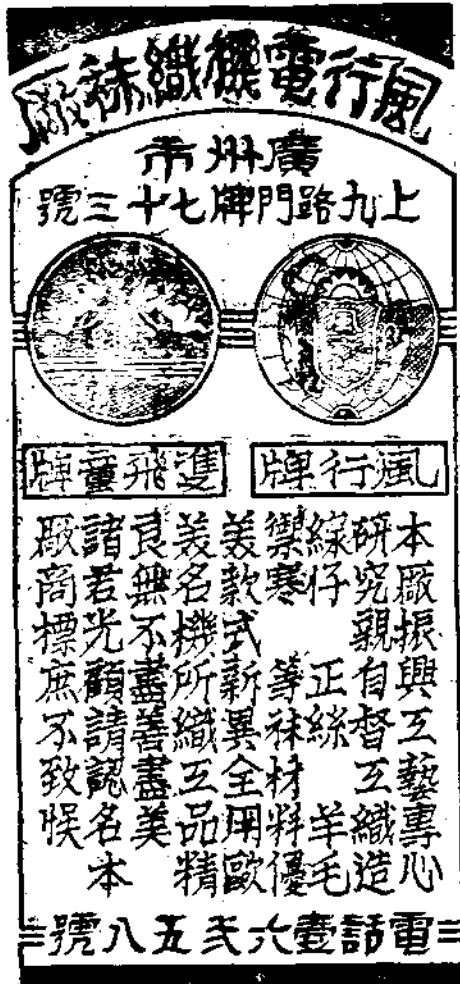 風行電機織袜廠
廣州市
上九路門牌七十三號
風行牌
雙飛童牌
本廠振興工藝專心
研究親自督工織造
線仔 正絲 羊毛
禦寒 等袜材料優
美款式新異全用歐
美名機所織工品精
良無不盡善盡美
諸君光顧請認名本
廠商標庶不致悮
電話壹六弍五八號